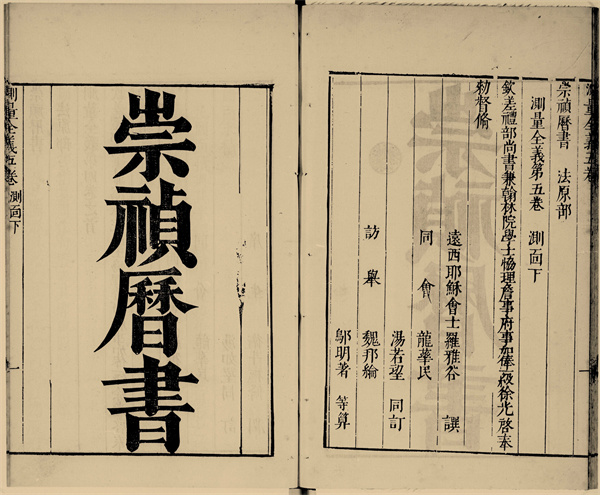 崇禎曆書
測量全義五卷 測面下
測量全義五卷
崇禎曆書 法原部
測量全義第五卷 測面下
欽差禮部尚書兼翰林院學士協理詹事府事加俸一級徐光啓奉
勑督脩
遠西耶穌會士羅雅谷 譔
同會 龍華民
湯若望 同訂
訪舉 魏邦綸
鄔明著 等算